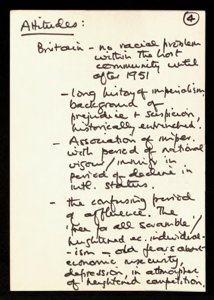 4
Attitudes:
Britain - no racial problem
within the host
community until
after 1951
- long history of imperialism,
background of
prejudice + suspicion,
historically entrenched.
- Association of imper.
with period of national
vigour / immig. in
period of decline in
intl. status.
- the confusing period
of affluence. The
free for all scramble /
heightened ec. individual-
-ism - old fears about
economic insecurity
depression, in atmosphere
of heightened competition.